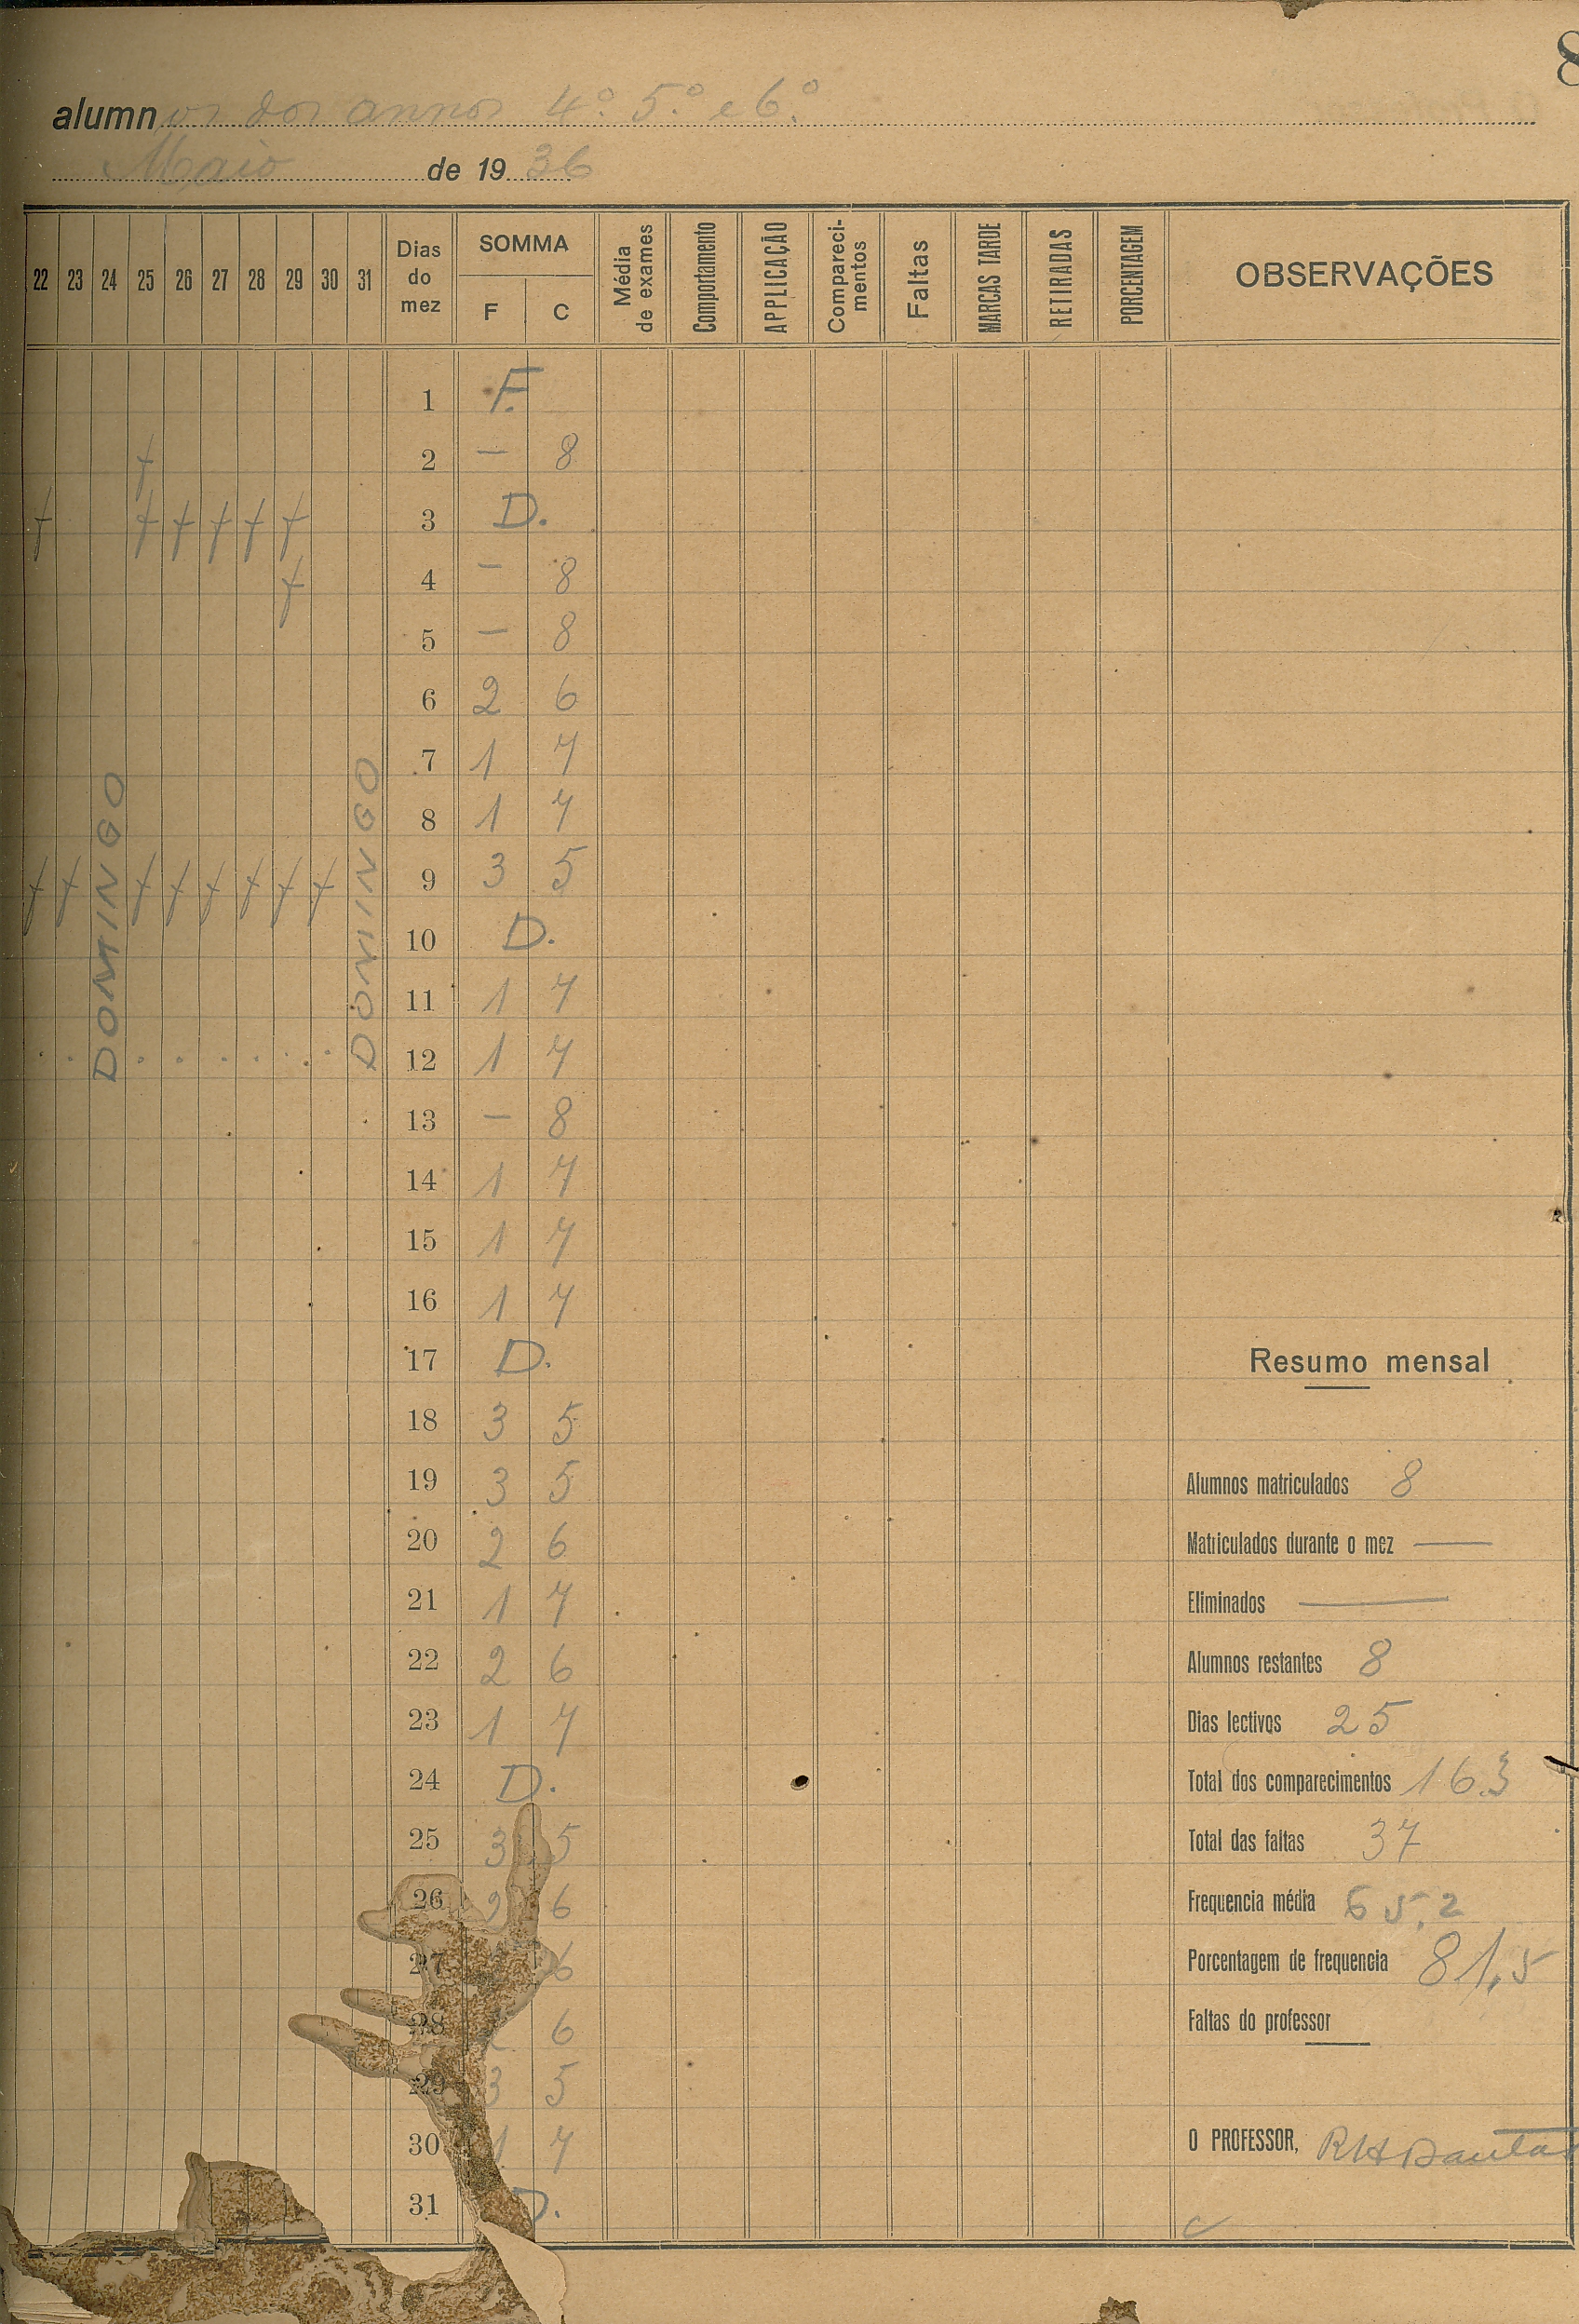 8
alumnos dos annos 4º. 5.º e 6º.
Maio de 1936
22 23 24 25 26 27 28 29 30 31 Dias do mez SOMMA F C Média de exames Comportamento APPLICAÇÃO Compareci-mentos Faltas MARCAS TARDE RETIRADAS PORCENTAGEM OBSERVAÇÕES
1 F.
2 — 8
3 D.
4 — 8
5 — 8
6 2 6
7 1 7
8 1 7
9 3 5
10 D.
11 1 7
12 1 7
13 — 8
14 1 7
15 1 7
16 1 7
17 D.
18 3 5
19 3 5
20 2 6
21 1 7
22 2 6
23 1 7
24 D.
25 3 5
26 2 6
27 6
28 6
29 3 5
30 1 7
31 D.
DOMINGO
DOMINGO
Resumo mensal
Alumnos matriculados 8
Matriculados durante o mez —
Eliminados —
Alumnos restantes 8
Dias lectivos 25
Total dos comparecimentos 163
Total das faltas 37
Frequencia média 65,2
Porcentagem de frequencia 81,5
Faltas do professor
O PROFESSOR, RHDantas